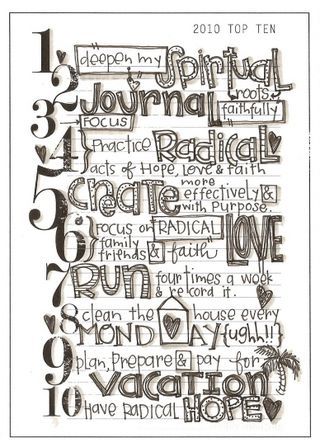 2010 TOP TEN
1 deepen my Spiritual
roots
2 Journal faithfully
3 FOCUS
4 } Practice Radical
acts of Hope, Love & faith
5 Create more
effectively &
with Purpose.
6 } Focus on RADICAL LOVE
family
friends & faith
7 Run four times a week
& record it.
8 clean the house every
MONDAY {ughh!!}
9 plan, Prepare & pay for
Vacation
10 Have RADICAL HOPE